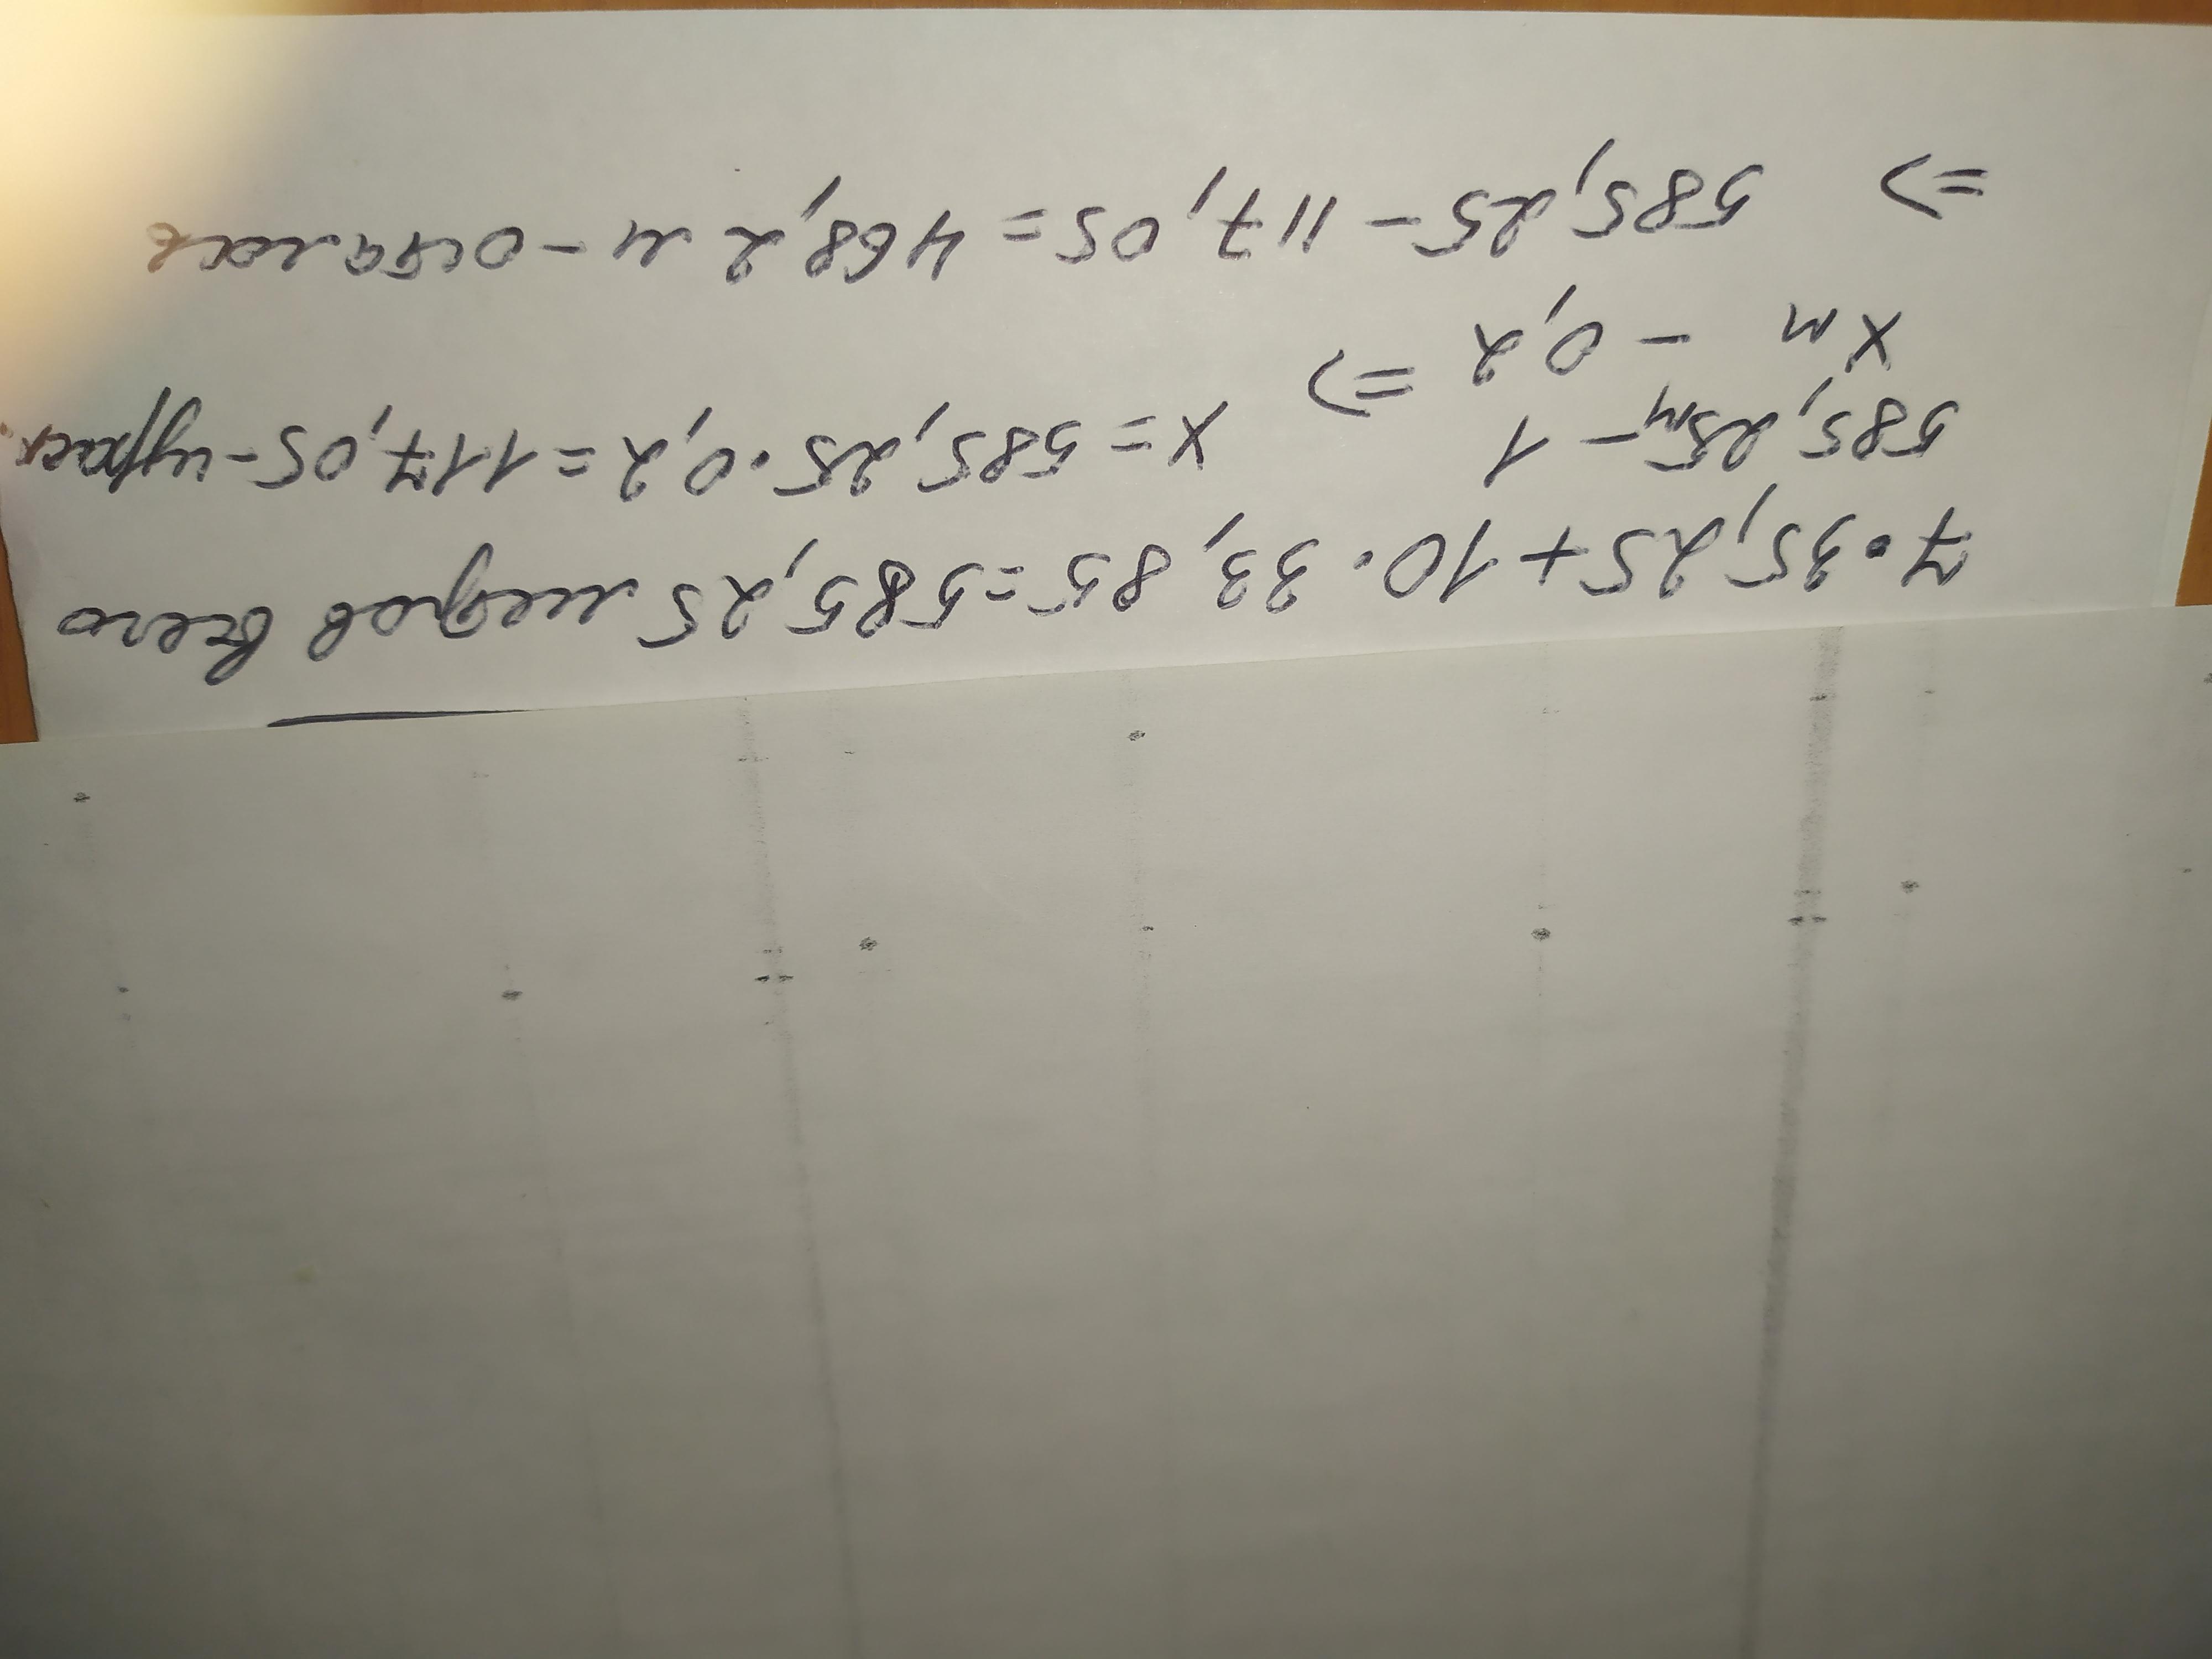 7·35,25+10·33,85=585,25 метров всего
585,25м – 1
x м – 0,2 => x=585,25·0,2=117,05-израсх.
=> 585,25-117,05=468,2 м - осталось